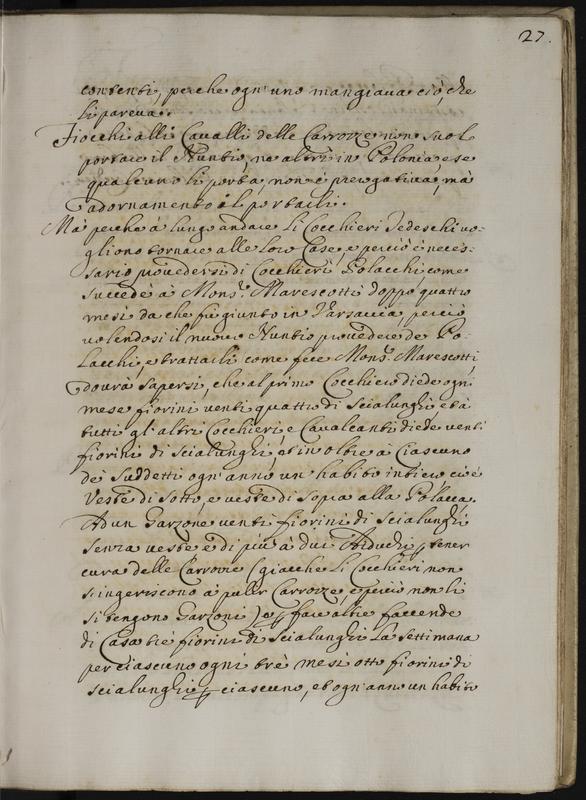 27.
contenti, perche ogn'uno mangiaua ciò, che
li pareua.
Fiocchi alli Caualli delle Carrozze non suol
portare il Nuntio, ne altri in Polonia, e se
qualcuno li porta, non è prerogatiua, mà
adornamento al portarli.
Mà perche à lungo andare li Cocchieri Tedeschi uo-
gliono tornare alle loro Case, e perciò è neces-
sario prouedersi di Cocchieri Polacchi, come
succedè à Mons.r Marescotti doppo quattro
mesi da che fù giunto in Varsauia, perciò
uolendosi il nuouo Nuntio prouedere de Po-
lacchi, e trattarli come fece Mons.r Marescotti,
dourà sapersi, che al primo Cocchiero diede ogni
mese fiorini uenti quattro di Scialunghi, et à
tutti gl'altri Cocchieri, e Caualcanti diede uenti
fiorini di Scialunghi, et in oltre à Ciascuno
de Suddetti ogn'anno un habito intiero, cioè
Veste di sotto, e ueste di sopra alla Polacca.
Ad un Garzone uenti fiorini di Scialunghi
senza ueste e di più à dui Aiduchi p tener
cura delle Carrozze (giacche li Cocchieri non
s'ingeriscono à pulir Carrozze, e perciò non li
si tengono Garzoni) e p fare altre faccende
di Casa tre fiorini di Scialunghi la settimana
per ciascuno ogni trè mesi otto fiorini di
scialunghi p ciascuno, et ogn'anno un habito